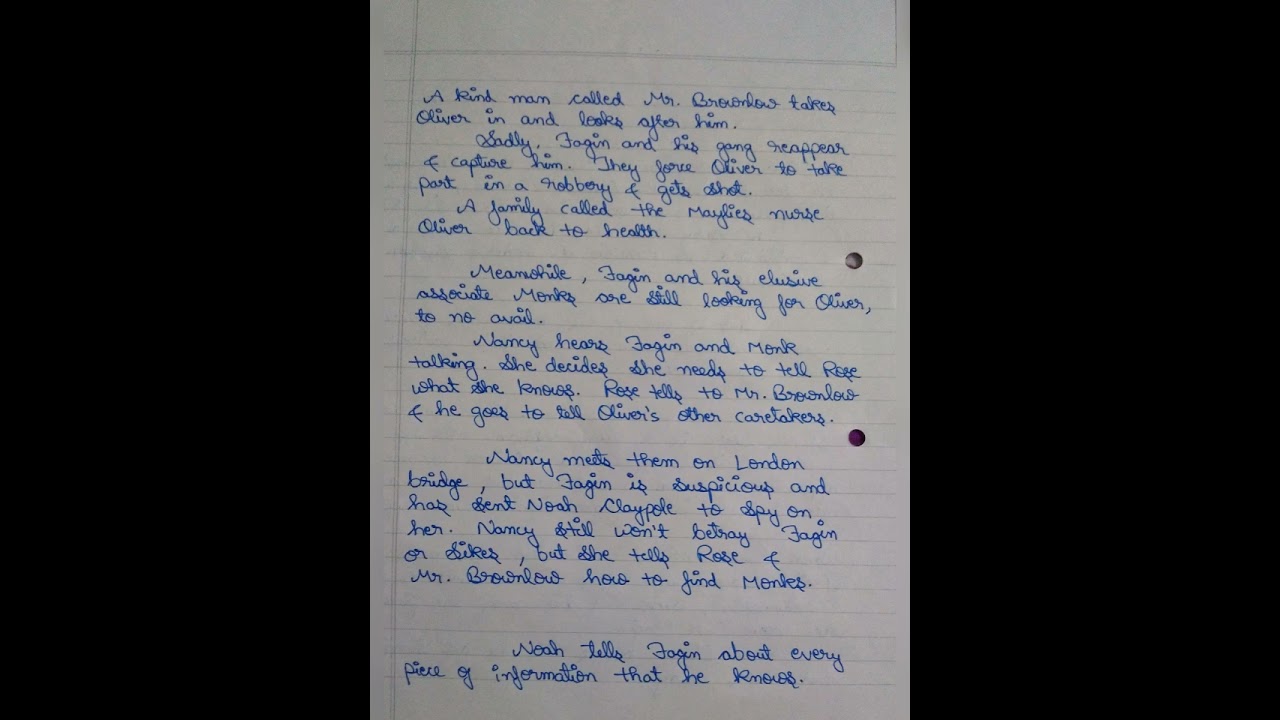 A kind man called Mr. Brownlow takes
Oliver in and looks after him.
Sadly, Fagin and his gang reappear
& capture him. They force Oliver to take
part in a robbery & gets shot.
A family called the Maylies nurse
Oliver back to health.
Meanwhile, Fagin and his elusive
associate Monks are still looking for Oliver,
to no avail.
Nancy hears Fagin and Monk
talking. She decides she needs to tell Rose
what she knows. Rose tells to Mr. Brownlow
& he goes to tell Oliver's other caretakers.
Nancy meets them on London
bridge, but Fagin is suspicious and
has sent Noah Claypole to spy on
her. Nancy still won't betray Fagin
or Sikes, but she tells Rose &
Mr. Brownlow how to find Monks.
Noah tells Fagin about every
piece of information that he knows.